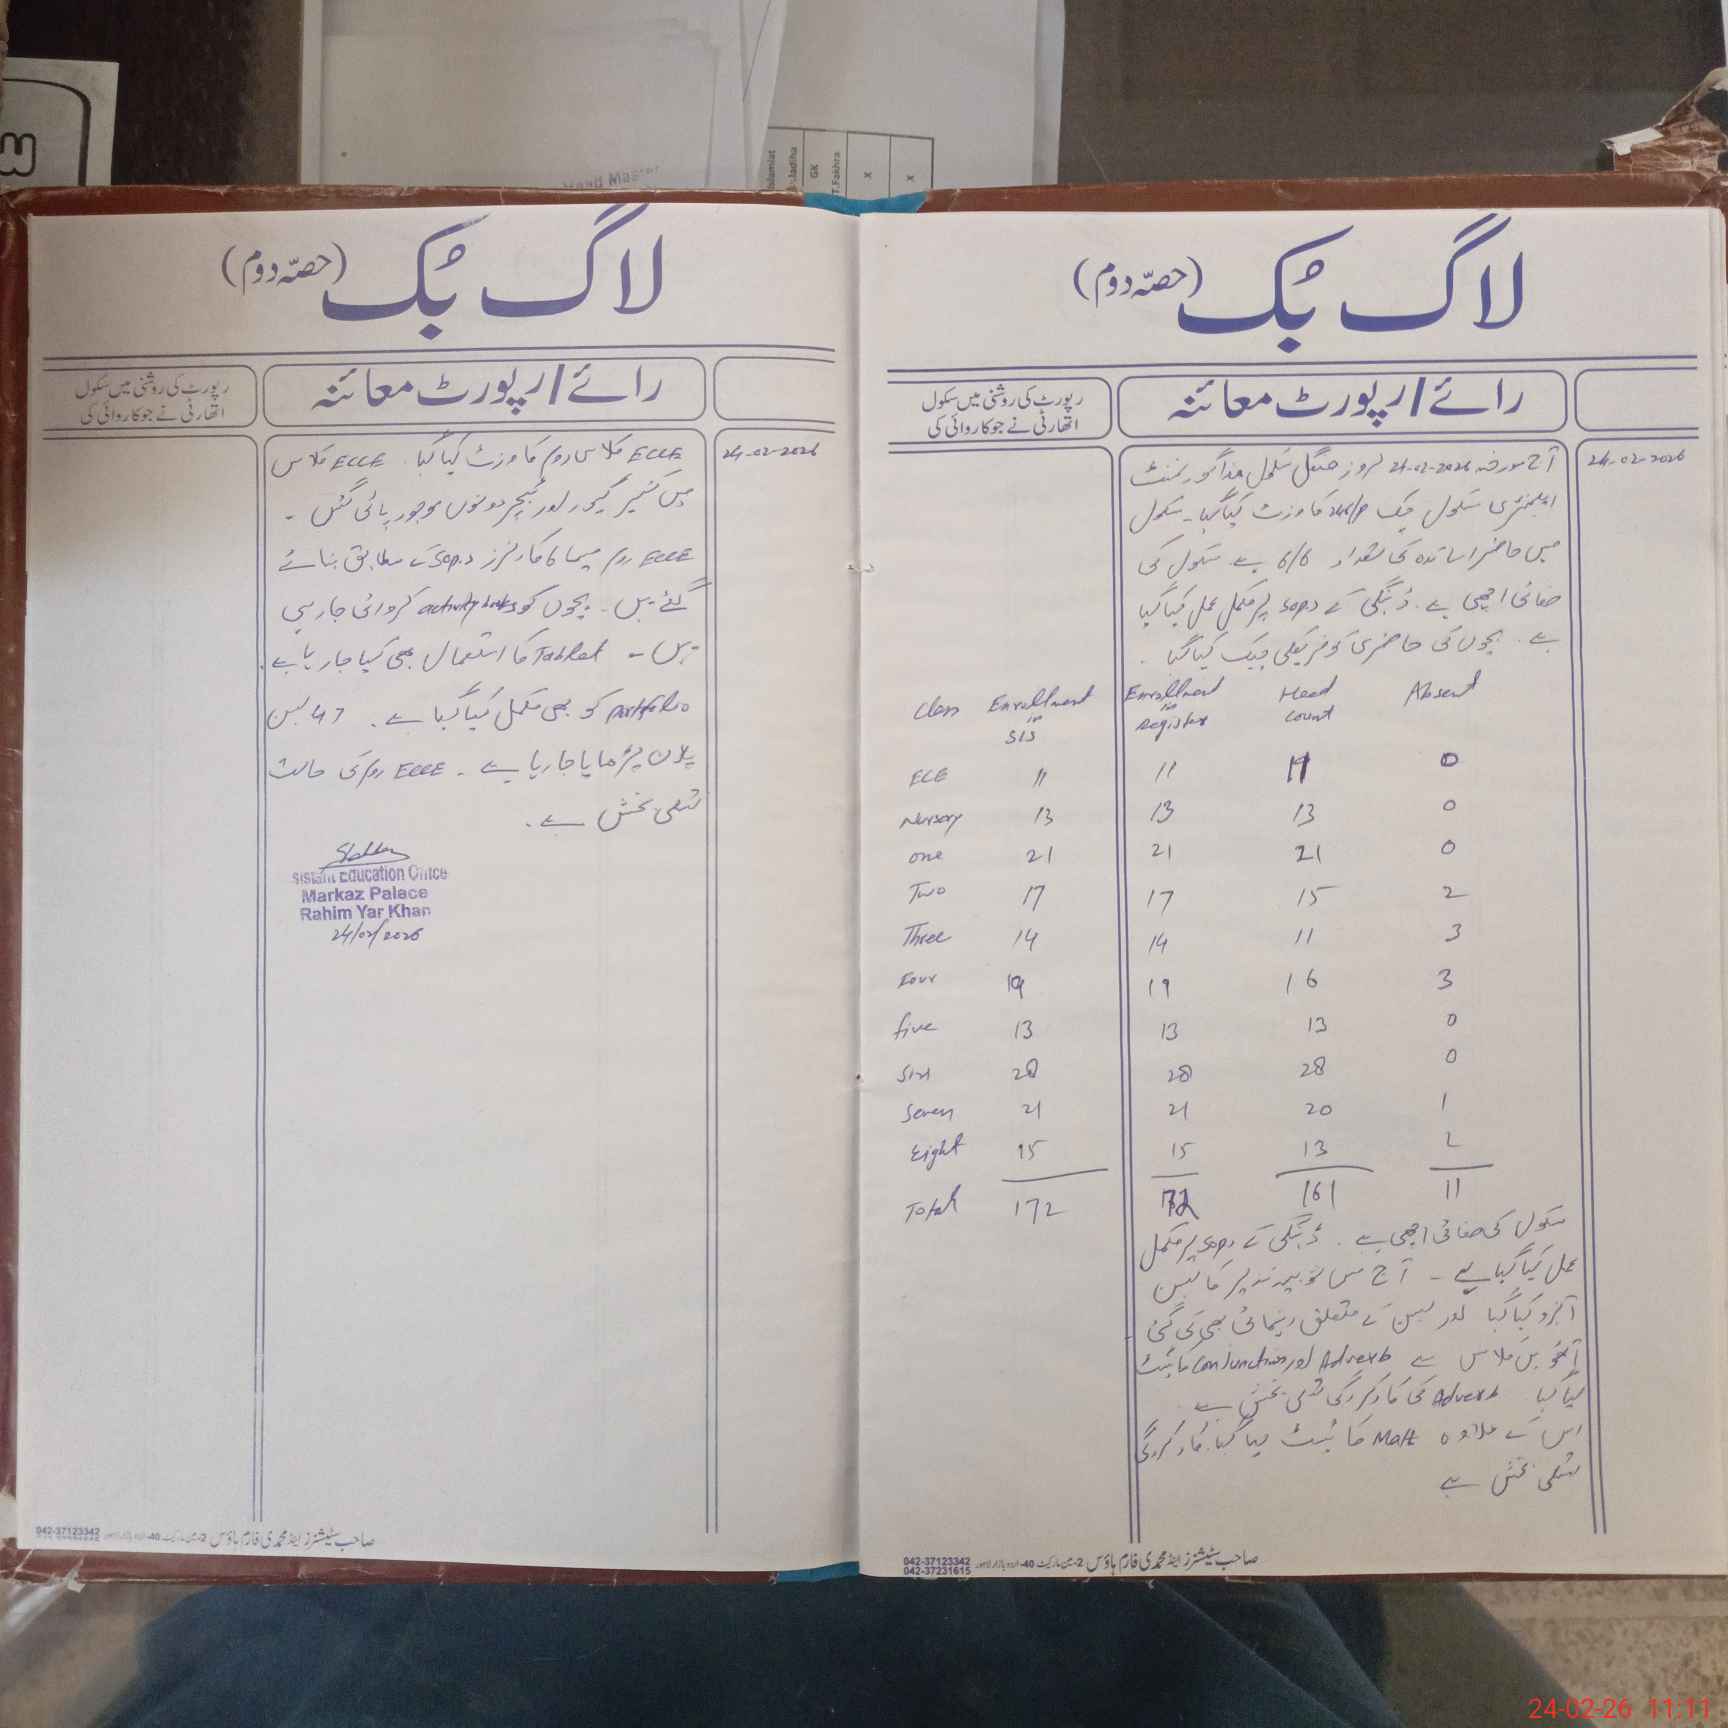 Head Master
Islamiat
GK
T.Fakhra
x
x
لاگ بُک (حصّہ دوم)
رپورٹ کی روشنی میں سکول
اتھارٹی نے جو کاروائی کی
رائے / رپورٹ معائنہ
24-02-2026
آج مورخہ 24-02-2026 بروز منگل سکول ھذا گورنمنٹ
ایلیمنٹری سکول چک کا وزٹ کیا گیا۔ سکول
میں حاضر اساتذہ کی تعداد 6/6 ہے۔ سکول کی
صفائی اچھی ہے۔ ڈینگی کے SOPs پر مکمل عمل کیا گیا
ہے۔ بچوں کی حاضری کو فزیکلی چیک کیا گیا۔
Class Enrollment in SIS Enrollment in Register Head Count Absent
ECE 11 11 11 0
Nursery 13 13 13 0
One 21 21 21 0
Two 17 17 15 2
Three 14 14 11 3
Four 19 19 16 3
five 13 13 13 0
Six 28 28 28 0
Seven 21 21 20 1
Eight 15 15 13 2
Total 172 172 161 11
سکول کی صفائی اچھی ہے۔ ڈینگی کے SOPs پر مکمل
عمل کیا گیا ہے۔ آج مس کا لیسن
آبزرو کیا گیا اور لیسن کے متعلق رہنمائی بھی کی گئی
آٹھویں کلاس سے Adverb اور Conjunction کا ٹیسٹ
لیا گیا Adverb کی کارکردگی تسلی بخش ہے۔
اس کے علاوہ Math کا ٹیسٹ لیا گیا۔ کارکردگی
تسلی بخش ہے
صاحب سٹیشنرز اینڈ محمدی فارم ہاؤس 2-مین مارکیٹ 40-اردو بازار لاہور
042-37123342
042-37231615
لاگ بُک (حصّہ دوم)
رپورٹ کی روشنی میں سکول
اتھارٹی نے جو کاروائی کی
رائے / رپورٹ معائنہ
24-02-2026
ECCE کلاس روم کا وزٹ کیا گیا۔ ECCE کلاس
میں کیئر گیور اور ٹیچر دونوں موجود پائی گئیں۔
ECCE روم میں کارنرز SOPs کے مطابق بنائے
گئے ہیں۔ بچوں کو activity books کروائی جا رہی
ہیں۔ Tablet کا استعمال بھی کیا جا رہا ہے۔
Portfolio کو بھی مکمل کیا گیا ہے۔ 47 لیسن
پلان پڑھایا جا رہا ہے۔ ECCE روم کی حالت
تسلی بخش ہے۔
sistant Education Office
Markaz Palace
Rahim Yar Khan
24/02/2026
صاحب سٹیشنرز اینڈ محمدی فارم ہاؤس 2-مین مارکیٹ 40-اردو بازار لاہور
042-37123342
24-02-26 11:11